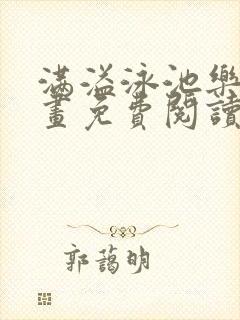 滿溢泳池樂
畫免費閱讀
郭藹明